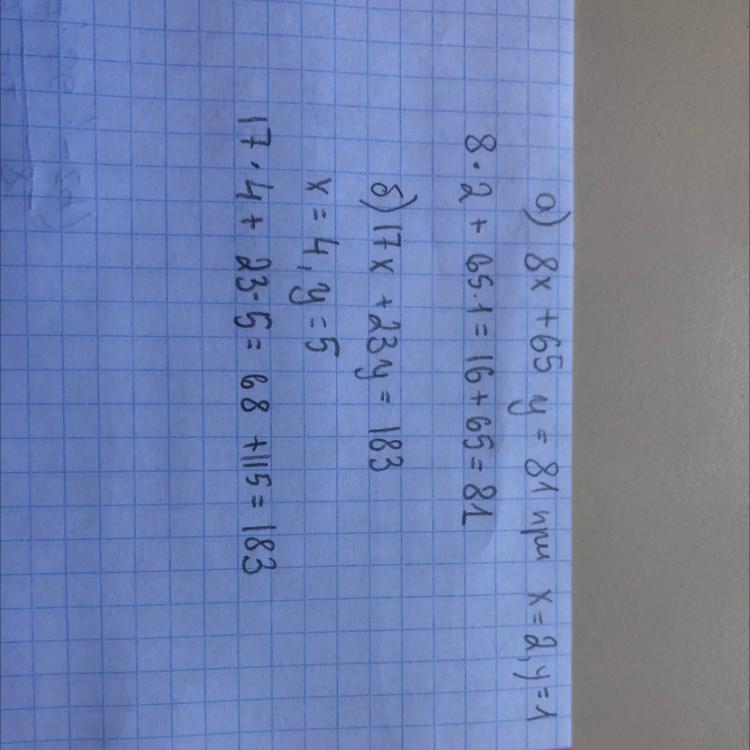 а) 8x + 65 y = 81 при x = 2, y = 1
8 · 2 + 65 · 1 = 16 + 65 = 81
б) 17x + 23y = 183
x = 4, y = 5
17 · 4 + 23 · 5 = 68 + 115 = 183